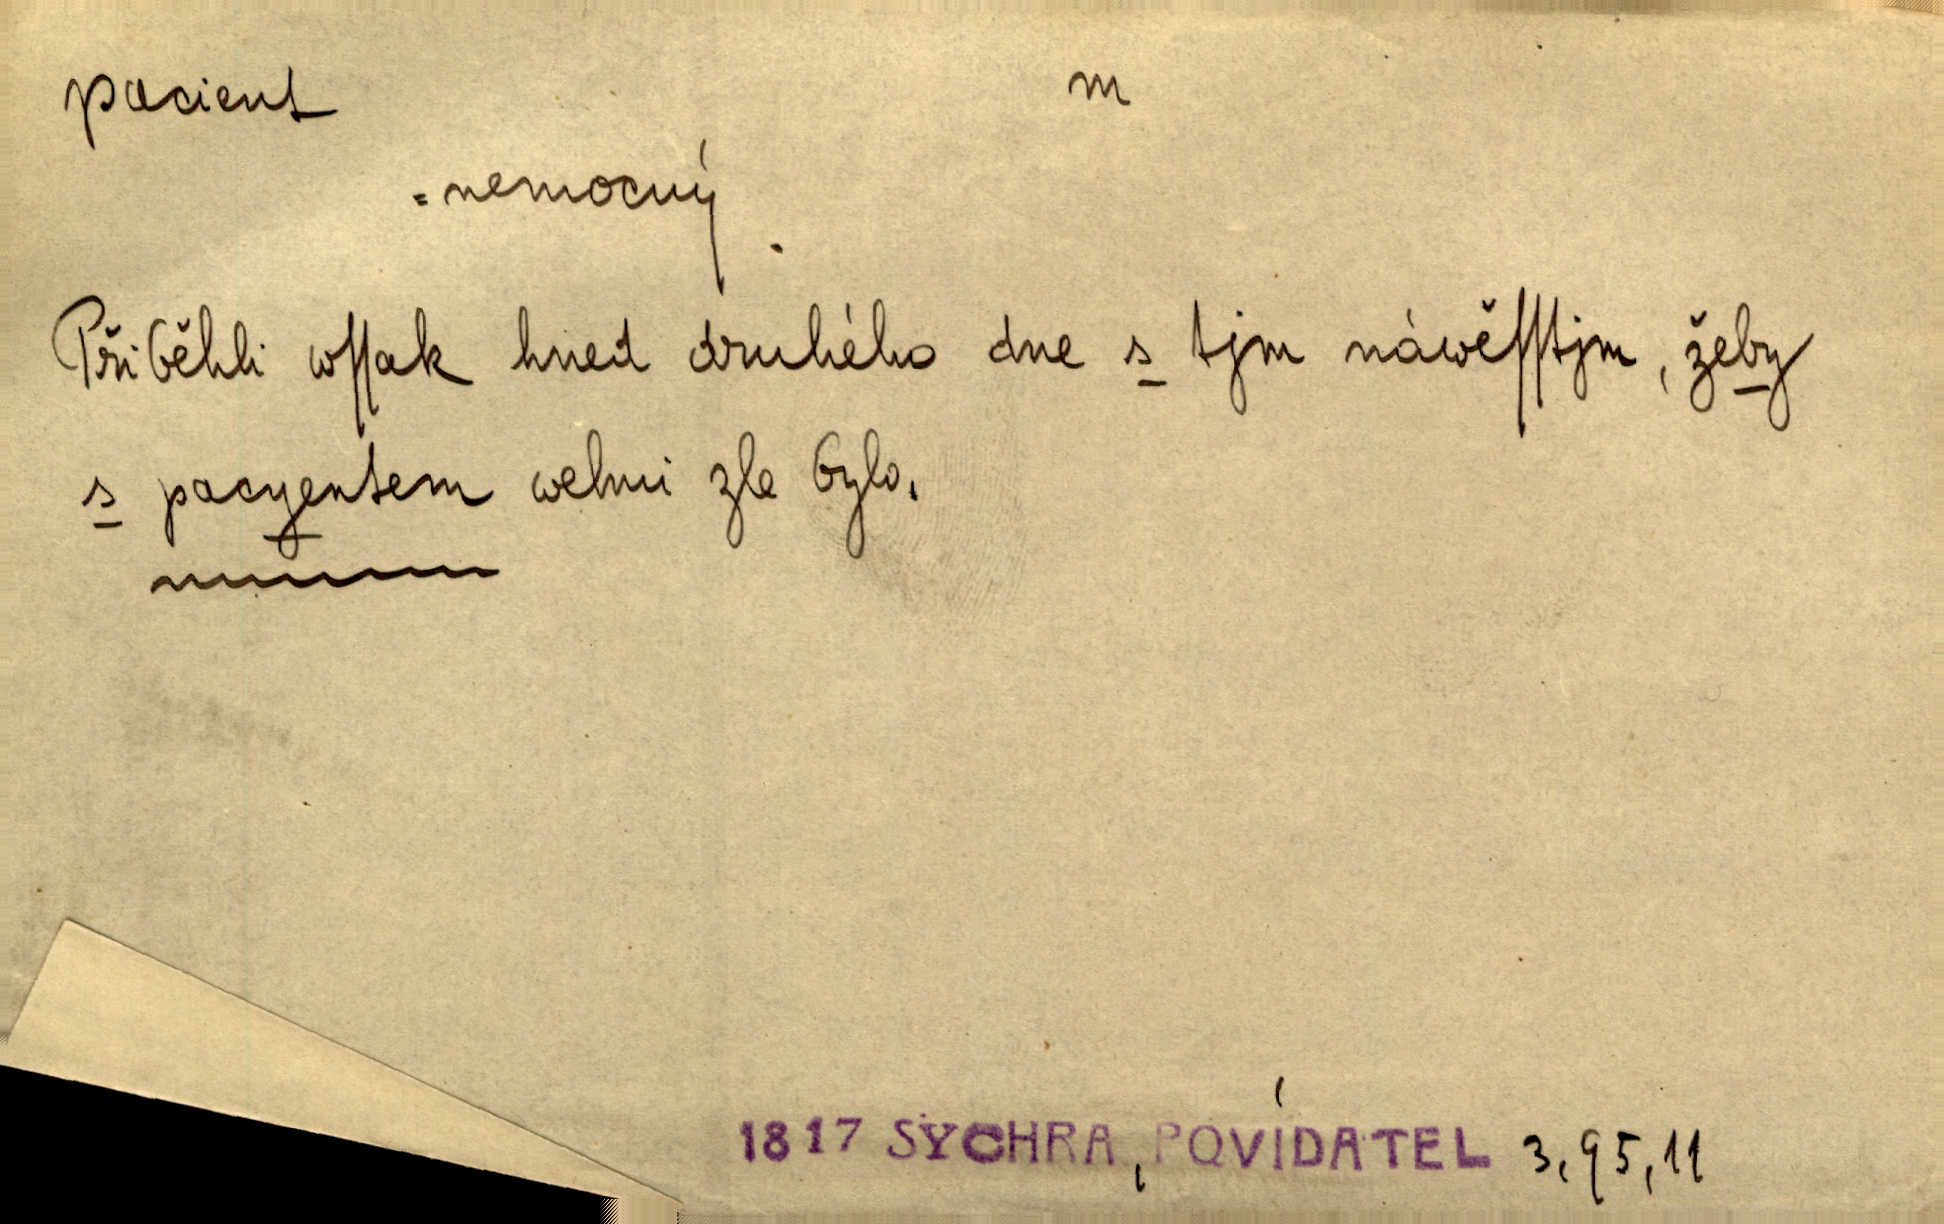 pacient m
= nemocný.
Přiběhli wssak hned druhého dne s tjm náwěsstjm, žeby
s pacyentem welmi zle bylo.
1817 SYCHRA, POVÍDATEL 3,95,11